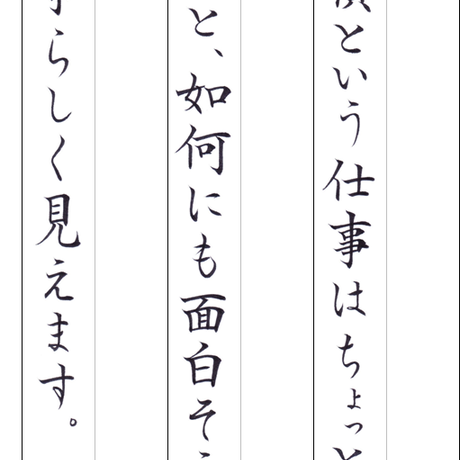 という仕事はちょっと
と、如何にも面白そ
らしく見えます。